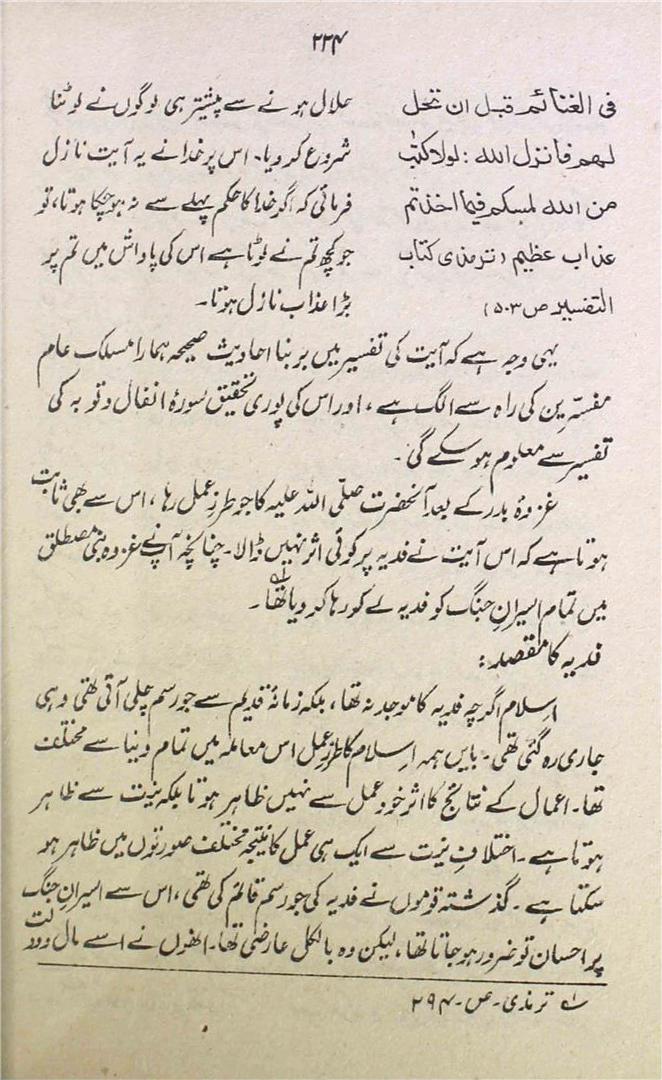 ۲۳۴
فی الغنائم قبل ان تحل
لہم فانزل اللہ: لولا کتٰب
من اللہ لمسکم فیما اخذتم
عذاب عظیم (ترمذی کتاب
التفسیر ص ۵۰۳)
حلال ہونے سے پیشتر ہی لوگوں نے لوٹنا
شروع کردیا۔ اس پر خدا نے یہ آیت نازل
فرمائی کہ اگر خدا کا حکم پہلے سے نہ ہوچکا ہوتا، تو
جو کچھ تم نے لوٹا ہے اس کی پاداش میں تم پر
بڑا عذاب نازل ہوتا۔
یہی وجہ ہے کہ آیت کی تفسیر میں بر بنا احادیث صحیحہ ہمارا مسلک عام
مفسّرین کی راہ سے الگ ہے، اور اس کی پوری تحقیق سورۂ انفال و توبہ کی
تفسیر سے معلوم ہوسکے گی۔
غزوۂ بدر کے بعد آنحضرت صلّی اللہ علیہ کا جو طرزِ عمل رہا، اس سے بھی ثابت
ہوتا ہے کہ اس آیت نے فدیہ پر کوئی اثر نہیں ڈالا۔ چنانچہ آپ نے غزوہ بنی مصطلق
میں تمام اسیرانِ جنگ کو فدیہ لے کر رہا کر دیا تھا۔ ؎۱
فدیہ کا مقصد:
اسلام اگرچہ فدیہ کا موجد نہ تھا، بلکہ زمانۂ قدیم سے جو رسم چلی آتی تھی وہی
جاری رہ گئی تھی۔ بایں ہمہ اسلام کا طرزِ عمل اس معاملہ میں تمام دنیا سے مختلف
تھا۔ اعمال کے نتائج کا اثر خود عمل سے نہیں ظاہر ہوتا بلکہ نیت سے ظاہر
ہوتا ہے۔ اختلافِ نیت سے ایک ہی عمل کا نتیجہ مختلف صورتوں میں ظاہر ہو
سکتا ہے۔ گذشتہ قوموں نے فدیہ کی جو رسم قائم کی تھی، اس سے اسیرانِ جنگ
پر احسان تو ضرور ہو جاتا تھا، لیکن وہ بالکل عارضی تھا۔ انھوں نے اسے مال ودولت
؎۱ ترمذی۔ ص۔ ۲۹۴